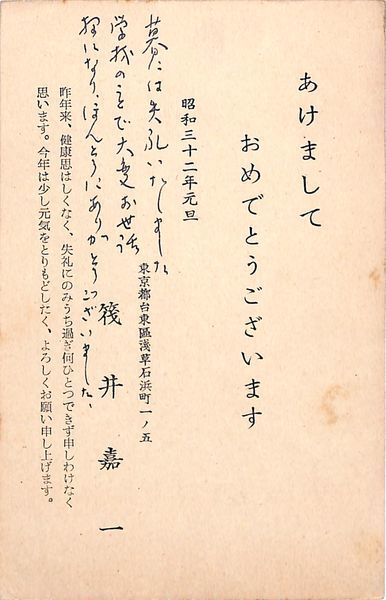 あけまして
おめでとうございます
昭和三十二年元旦
東京都台東區浅草石浜町一ノ五
筏井嘉一
暮には失礼いたしました
学校のことで大変お世話
様になり、ほんとうにありがとうございました、
昨年来、健康思はしくなく、失礼にのみうち過ぎ何ひとつできず申しわけなく
思います。今年は少し元気をとりもどしたく、よろしくお願い申し上げます。